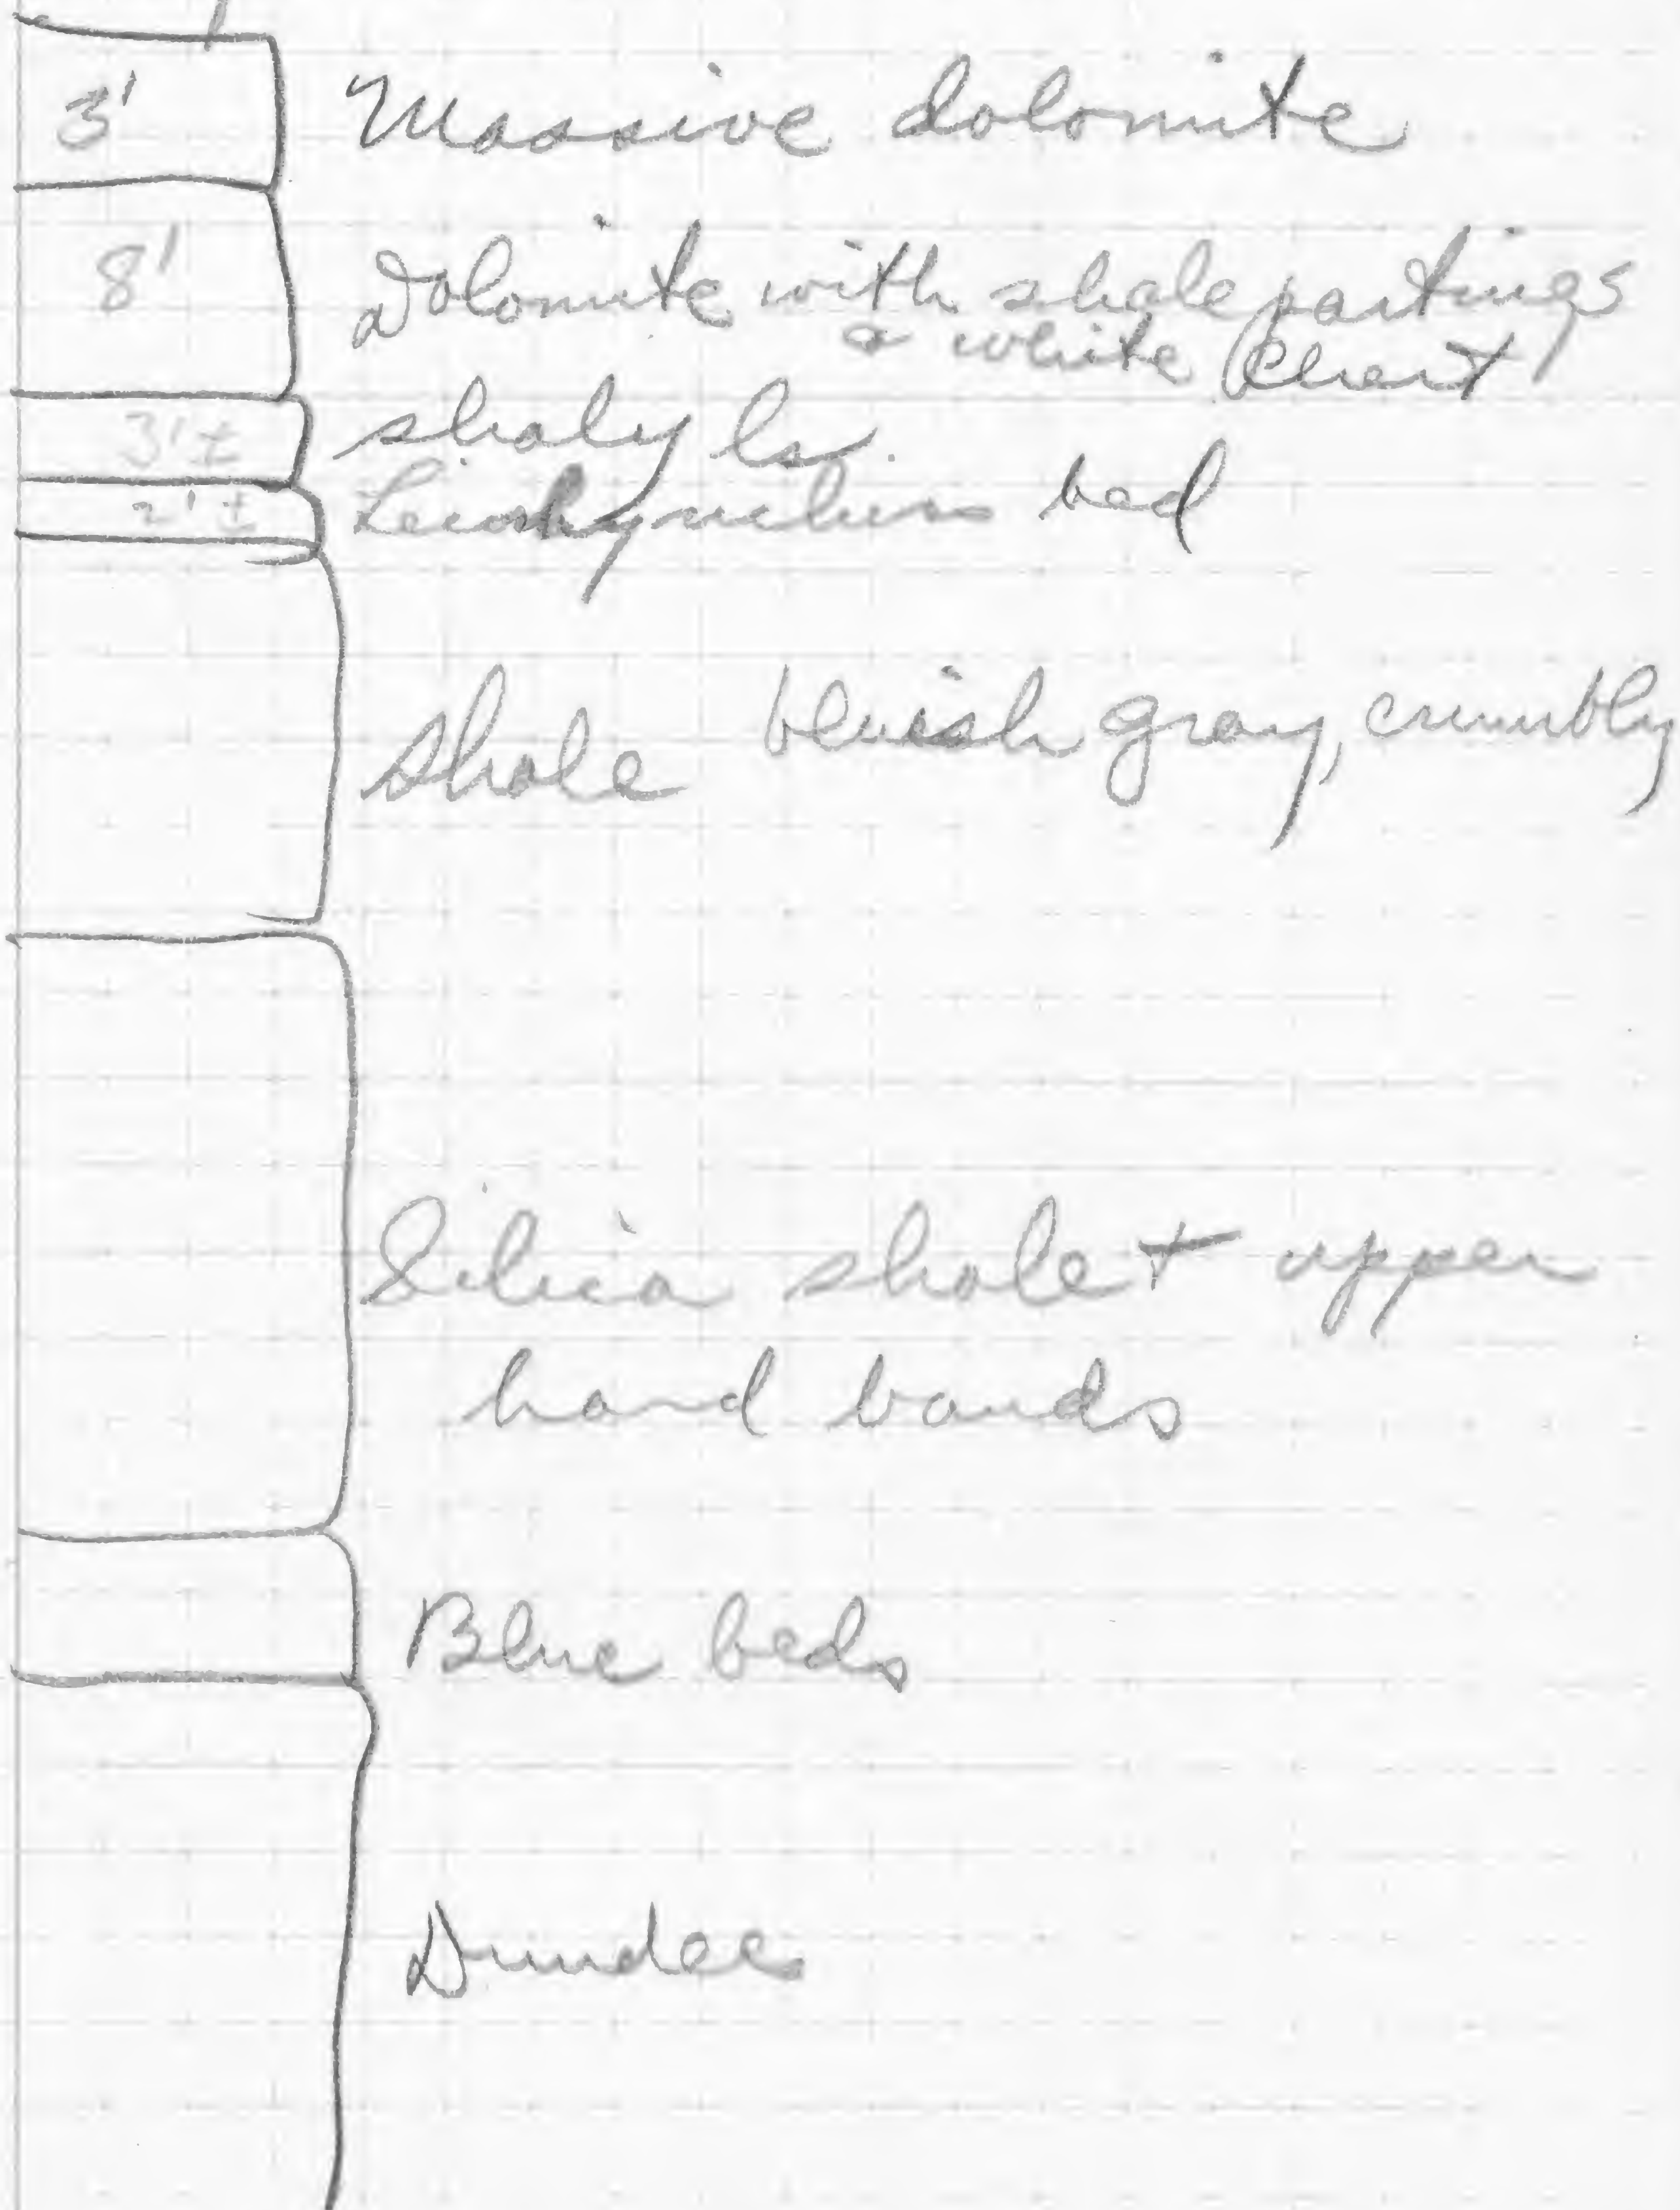 3' Massive dolomite
8' Dolomite with shale partings
& white chert
3'± shaly ls.
2'± Leiorhynchus bed
shale bluish gray, crumbly
Silica shale + upper
hard bands
Blue beds
Dundee